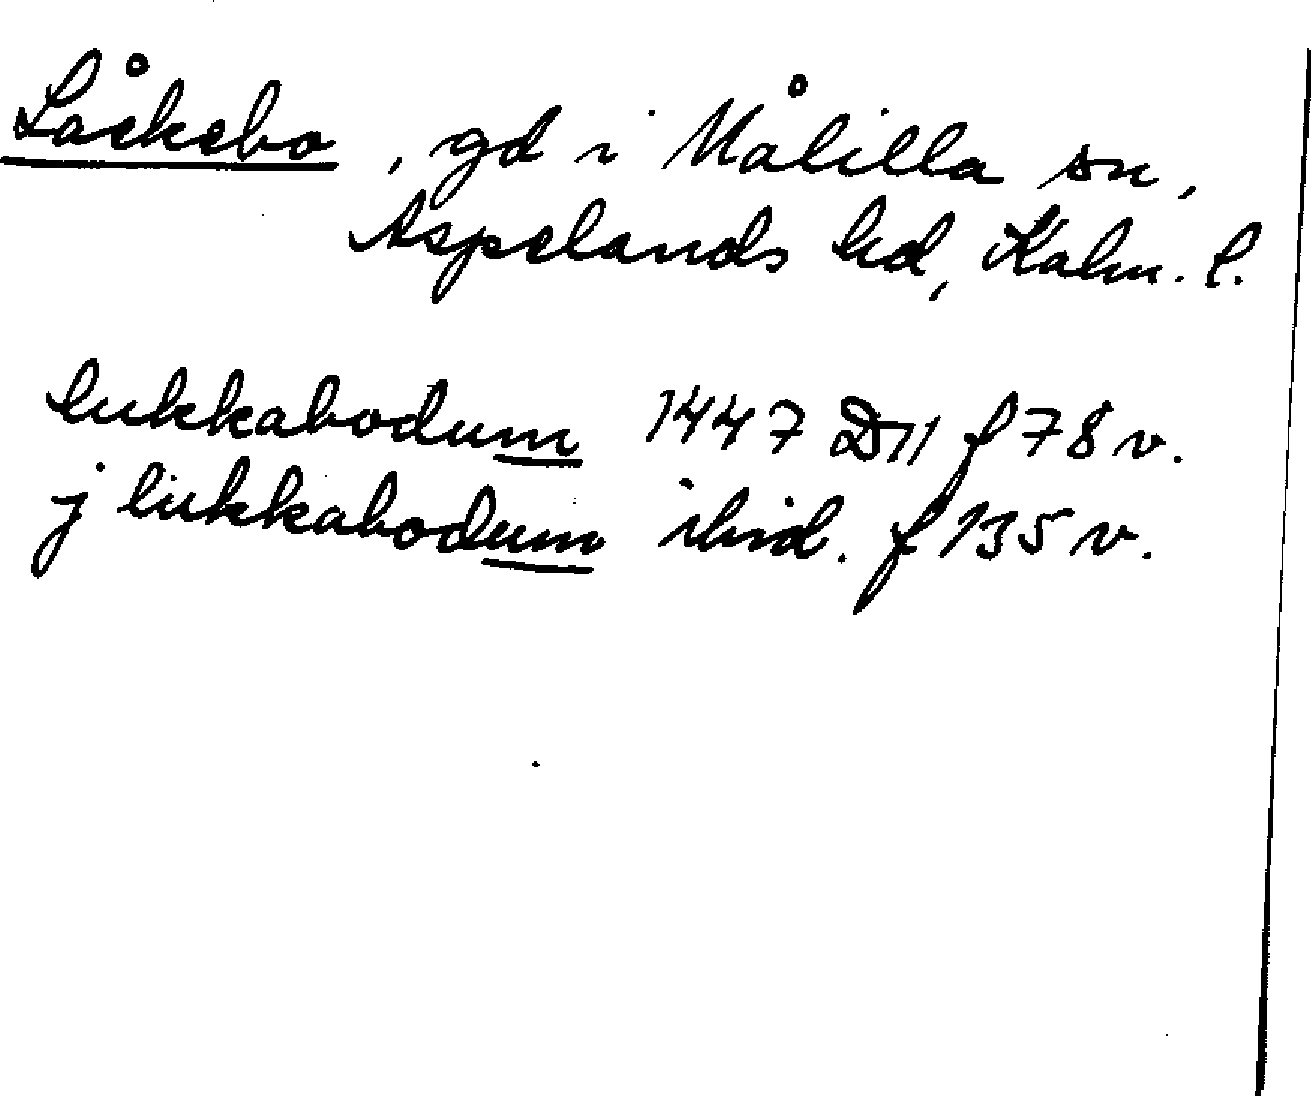 Låckebo, gd i Målilla sn,
Aspelands hd, Kalm. l.
lukkabodum 1447 D11 f 78 v.
j lukkabodum ibid. f 135 v.